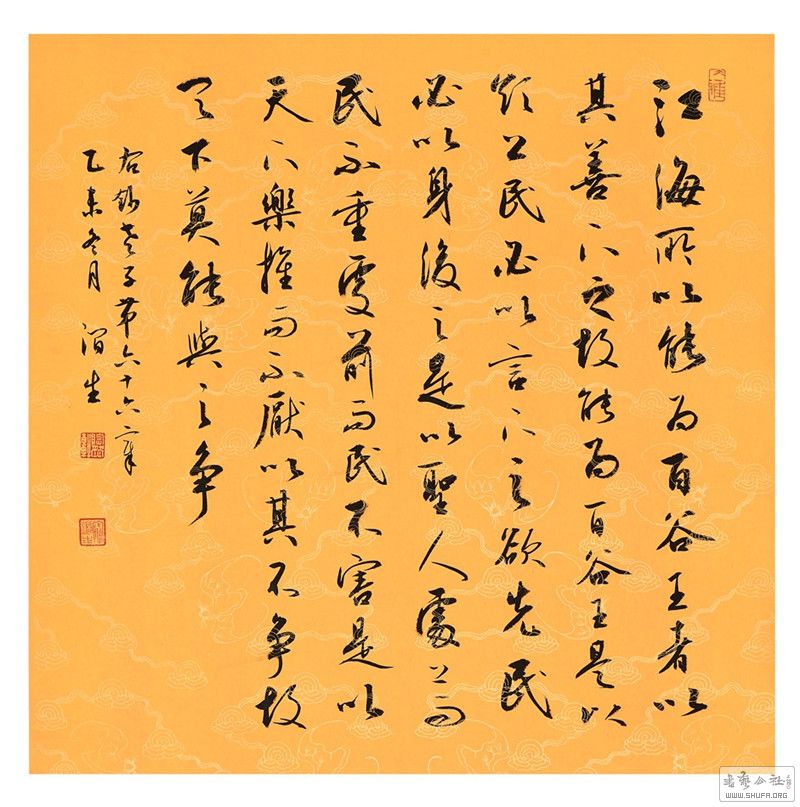 江海所以能為百谷王者以
其善下之故能為百谷王是以
欲上民必以言下之欲先民
必以身後之是以聖人處上而
民不重處前而民不害是以
天下樂推而不厭以其不争故
天下莫能與之争
右錄老子第六十六章
乙未冬月
書藝公社
WWW.SHUFA.ORG